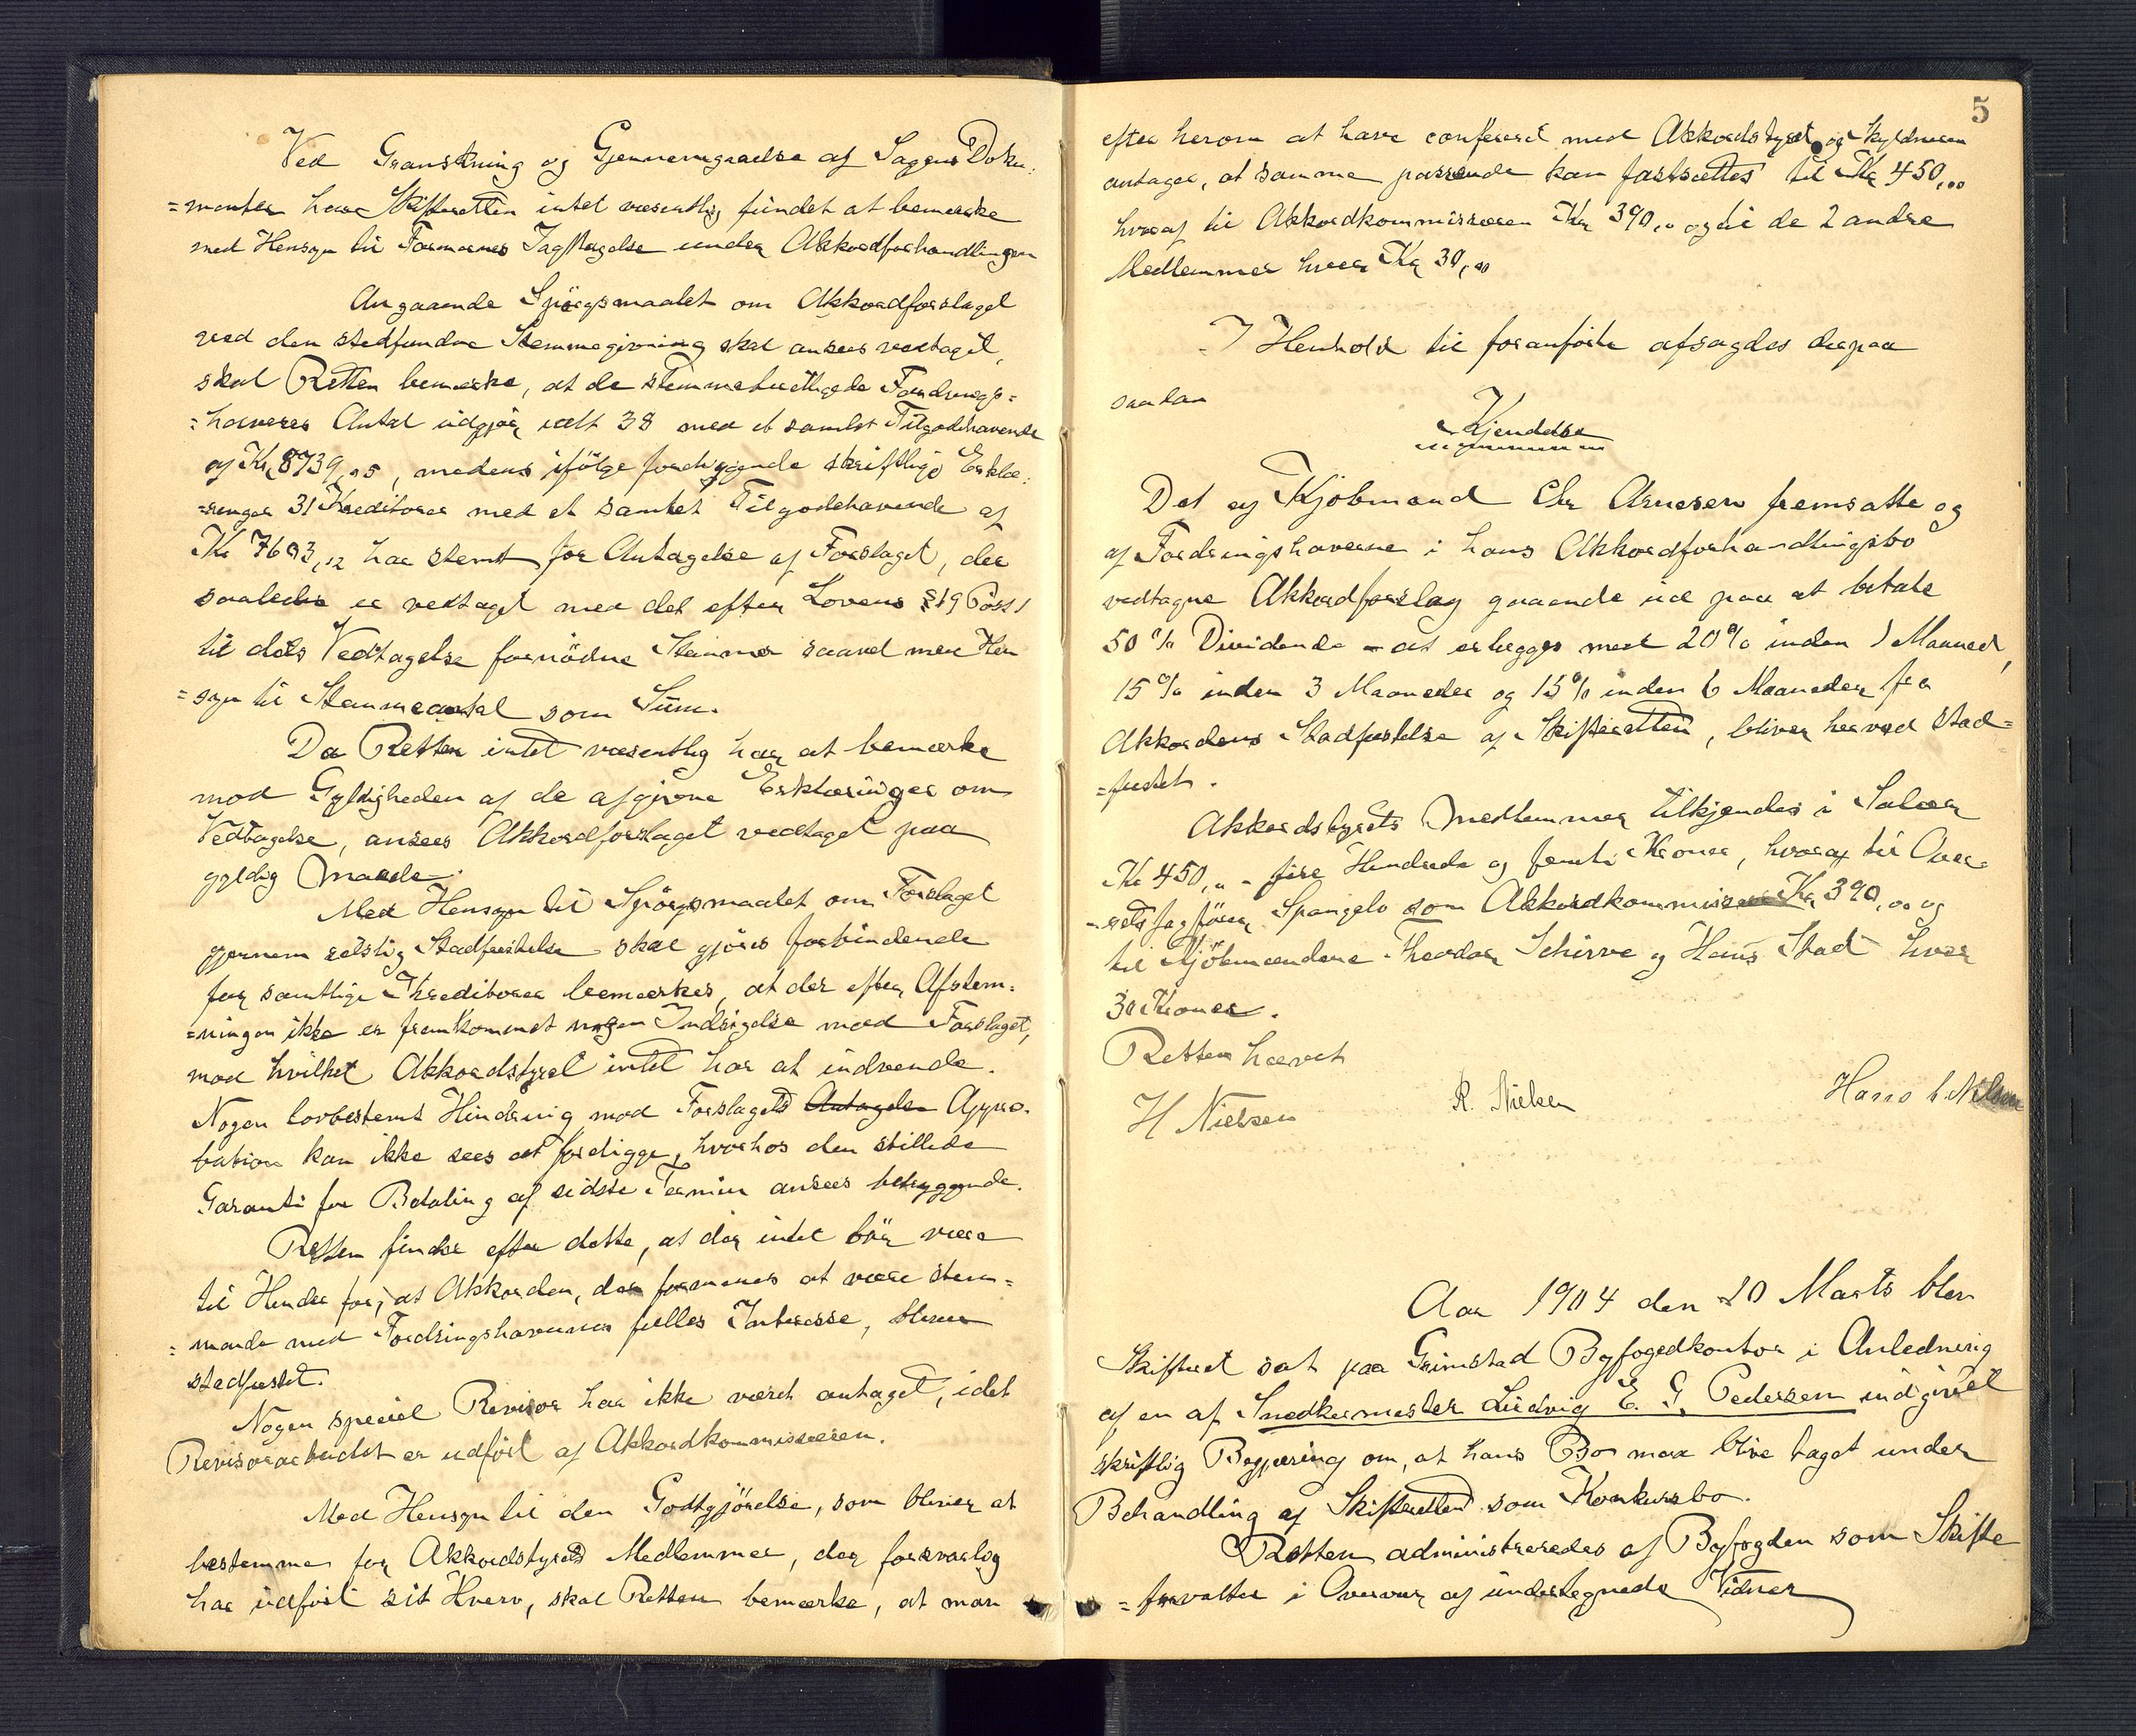 Ved Granskning og Gjennemgaaelse af Sagens Doku-
=menter har Skifteretten intet væsentlig fundet at bemærke
med Hensyn til Formernes Iagttagelse under Akkordforhandlingen
Angaaende Spörgsmaalet om Akkordforslaget
ved den stedfundne Stemmegivning skal ansees vedtaget,
skal Retten bemærke, at de stemmeberettigede Fordrings=
=haveres Antal udgjör ialt 38 med et samlet Tilgodehavende
af Kr 8739,05, medens ifölge foreliggende skriftlige Erklæ-
=ringer 31 Kreditorer med et samlet Tilgodehavende af
Kr 7693,12 har stemt for Antagelse af Forslaget, der
saaledes er vedtaget med det efter Lovens § 19 Post 1
til dets Vedtagelse fornödne Stemmer saavel med Hen
=syn til Stemmeantal som Sum.
Da Retten intet væsentlig har at bemærke
mod Gyldigheden af de afgivne Erklæringer om
Vedtagelse, ansees Akkordforslaget vedtaget paa
gyldig Maade.
Med Hensyn til Spörgsmaalet om Forslaget
gjennem retslig Stadfæstelse skal gjöres forbindende
for samtlige Kreditorer bemærkes, at der efter Afstem-
=ningen ikke er fremkommet nogen Indsigelse mod Forslaget,
mod hvilket Akkordstyret intet har at indvende.
Nogen lovbestemt Hindring mod Forslagets Antagelse Appro-
bation kan ikke sees at foreligge, hvorhos den stillede
Garanti for Betaling af sidste Termin ansees betryggende.
Retten finder efter dette, at der intet bör være
til Hinder for, at Akkorden, der formenes at være stem=
=mende med Fordringshavernes fælles Interesse, bliver
stadfæstet.
Nogen speciel Revisor har ikke været antaget, idet
Revisorarbeidet er udfört af Akkordkommissæren.
Med Hensyn til den Godtgjörelse, som bliver at
bestemme for Akkordstyrets Medlemmer, der forsvarlig
har udfört sit Hverv, skal Retten bemærke, at man
5
efter herom at have confereret med Akkordstyret og Skyldneren
antager, at samme passende kan fastsættes til Kr 450,00
hvoraf til Akkordkommissæren Kr 390,00 og til de 2 andre
Medlemmer hver Kr 30,00
I Henhold til foranförte afsagdes derpaa
saadan
Kjendelse
Det af Kjöbmand Chr Arnesen fremsatte og
af Fordringshaverne i hans Akkordforhandlingsbo
vedtagne Akkordforslag gaaende ud paa at betale
50 % Dividende - at erlægges med 20% inden 1 Maaned,
15 % inden 3 Maaneder og 15% inden 6 Maaneder fra
Akkordens Stadfæstelse af Skifteretten, bliver herved stad=
=fæstet.
Akkordstyrets Medlemmer tilkjendes i Salær
Kr 450,00 - fire Hundrede og femti Kroner, hvoraf til Over-
=retssagförer Spangelo som Akkordkommissær Kr 390,00 og
til Kjöbmændene Theodor Schirve og Hans Stad hver
30 Kroner.
Retten hævet
H Nielsen R. Nielsen Hans C. Nilsen
Aar 1904 den 20 Marts blev
Skifteret sat paa Grimstad Byfogedkontor i Anledning
af en af Snedkermester Ludvig E. G. Pedersen indgivet
skriftlig Begjæring om, at hans Bo maa blive taget under
Behandling af Skifteretten som Konkursbo.
Retten administreredes af Byfogden som Skifte
=forvalter i Overvær af undertegnede Vidner